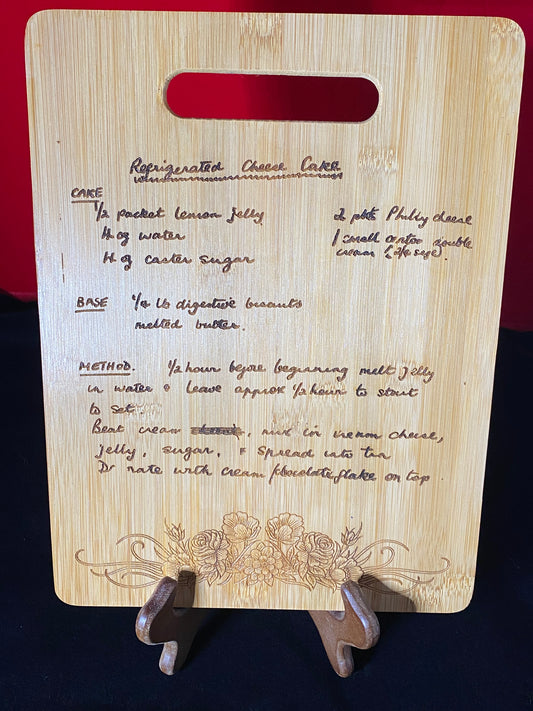 Refrigerated Cheese Cake
CAKE
1/2 packet lemon jelly
4 oz water
4 oz caster sugar
2 pkts Philly cheese
1 small carton double
cream
BASE 1/4 lb digestive biscuits
melted butter.
METHOD. 1/2 hour before beginning melt jelly
in water & leave approx 1/2 hour to start
to set.
Beat cream , mix in cream cheese,
jelly, sugar, & spread into tin
rate with cream / chocolate flake on top